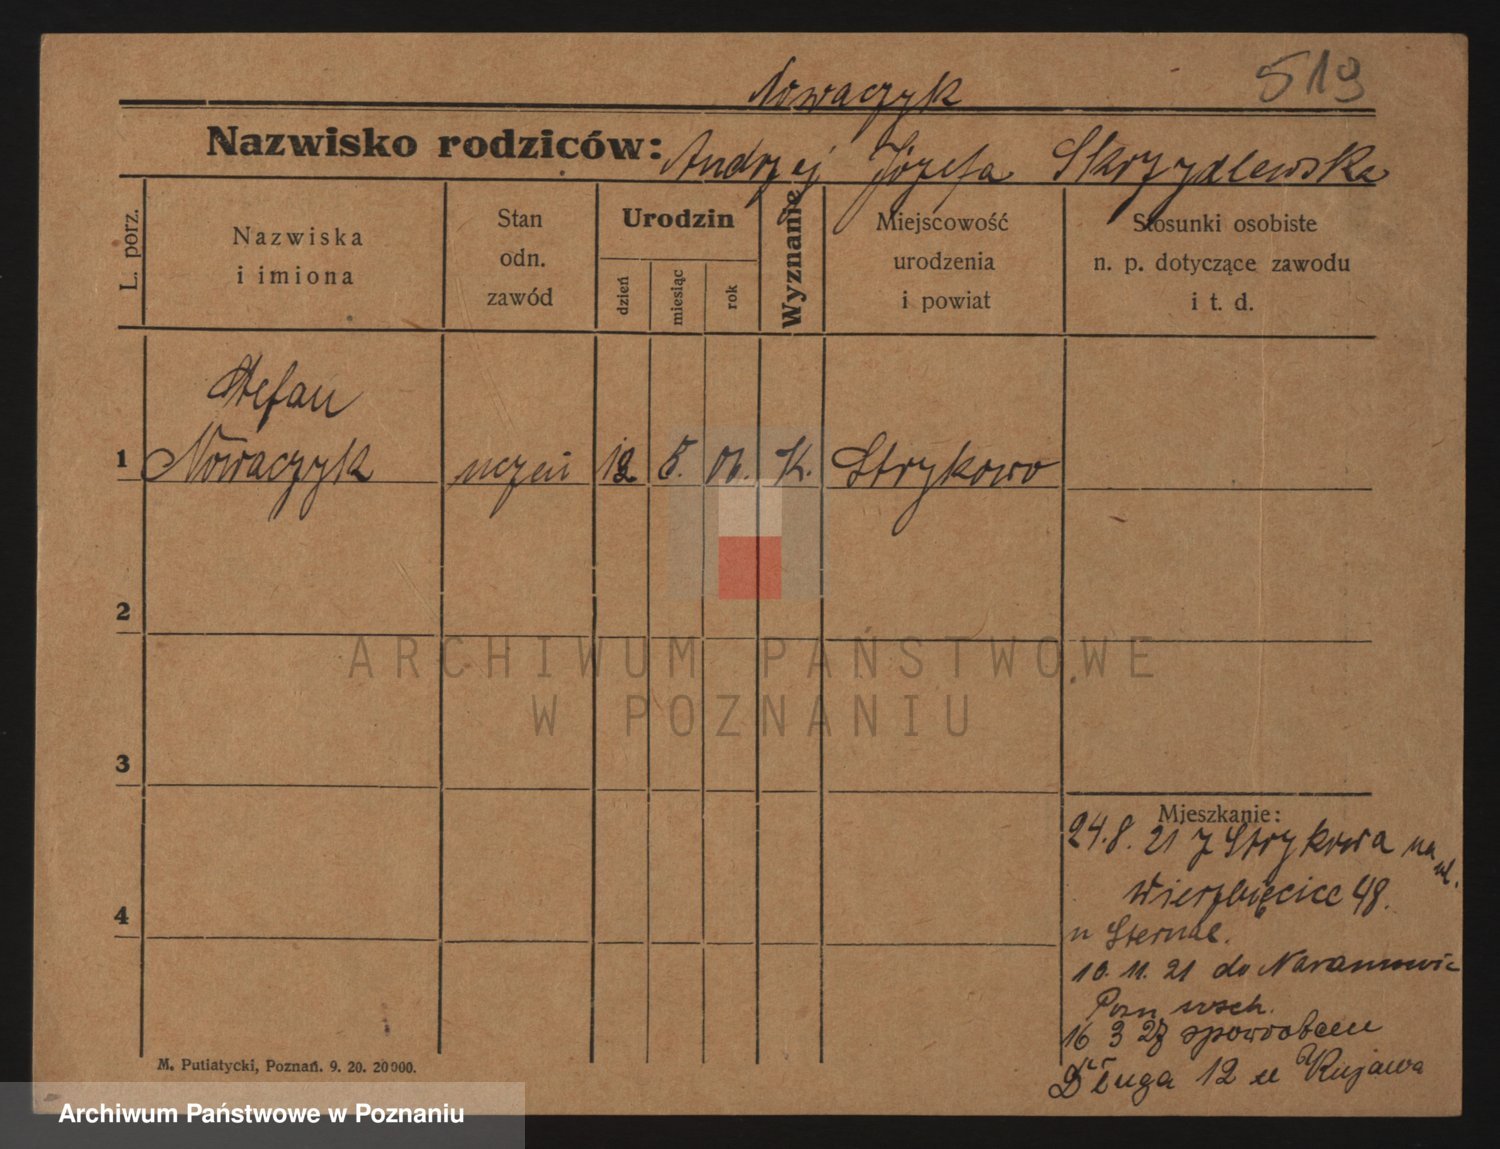 519
Nowaczyk
Nazwisko rodziców: Andrzej Józefa Skrzydlewska
L. porz.
Nazwiska
i imiona
Stan
odn.
zawód
Urodzin
dzień
miesiąc
rok
Wyznanie
Miejscowość
urodzenia
i powiat
Stosunki osobiste
n. p. dotyczące zawodu
i t. d.
Stefan
1 Nowaczyk uczeń 5. 06. K. Strykowo
2
3
4
ARCHIWUM PAŃSTWOWE
W POZNANIU
Mieszkanie:
24.8.21 z Strykowa na ul.
Wierzbięcice 48.
u Sternal.
10.11.21 do Naramowic
Pozn wsch.
16 3 spowrotem
Długa 12 u Kujawa
M. Putiatycki, Poznań. 9. 20. 20000.
Archiwum Państwowe w Poznaniu